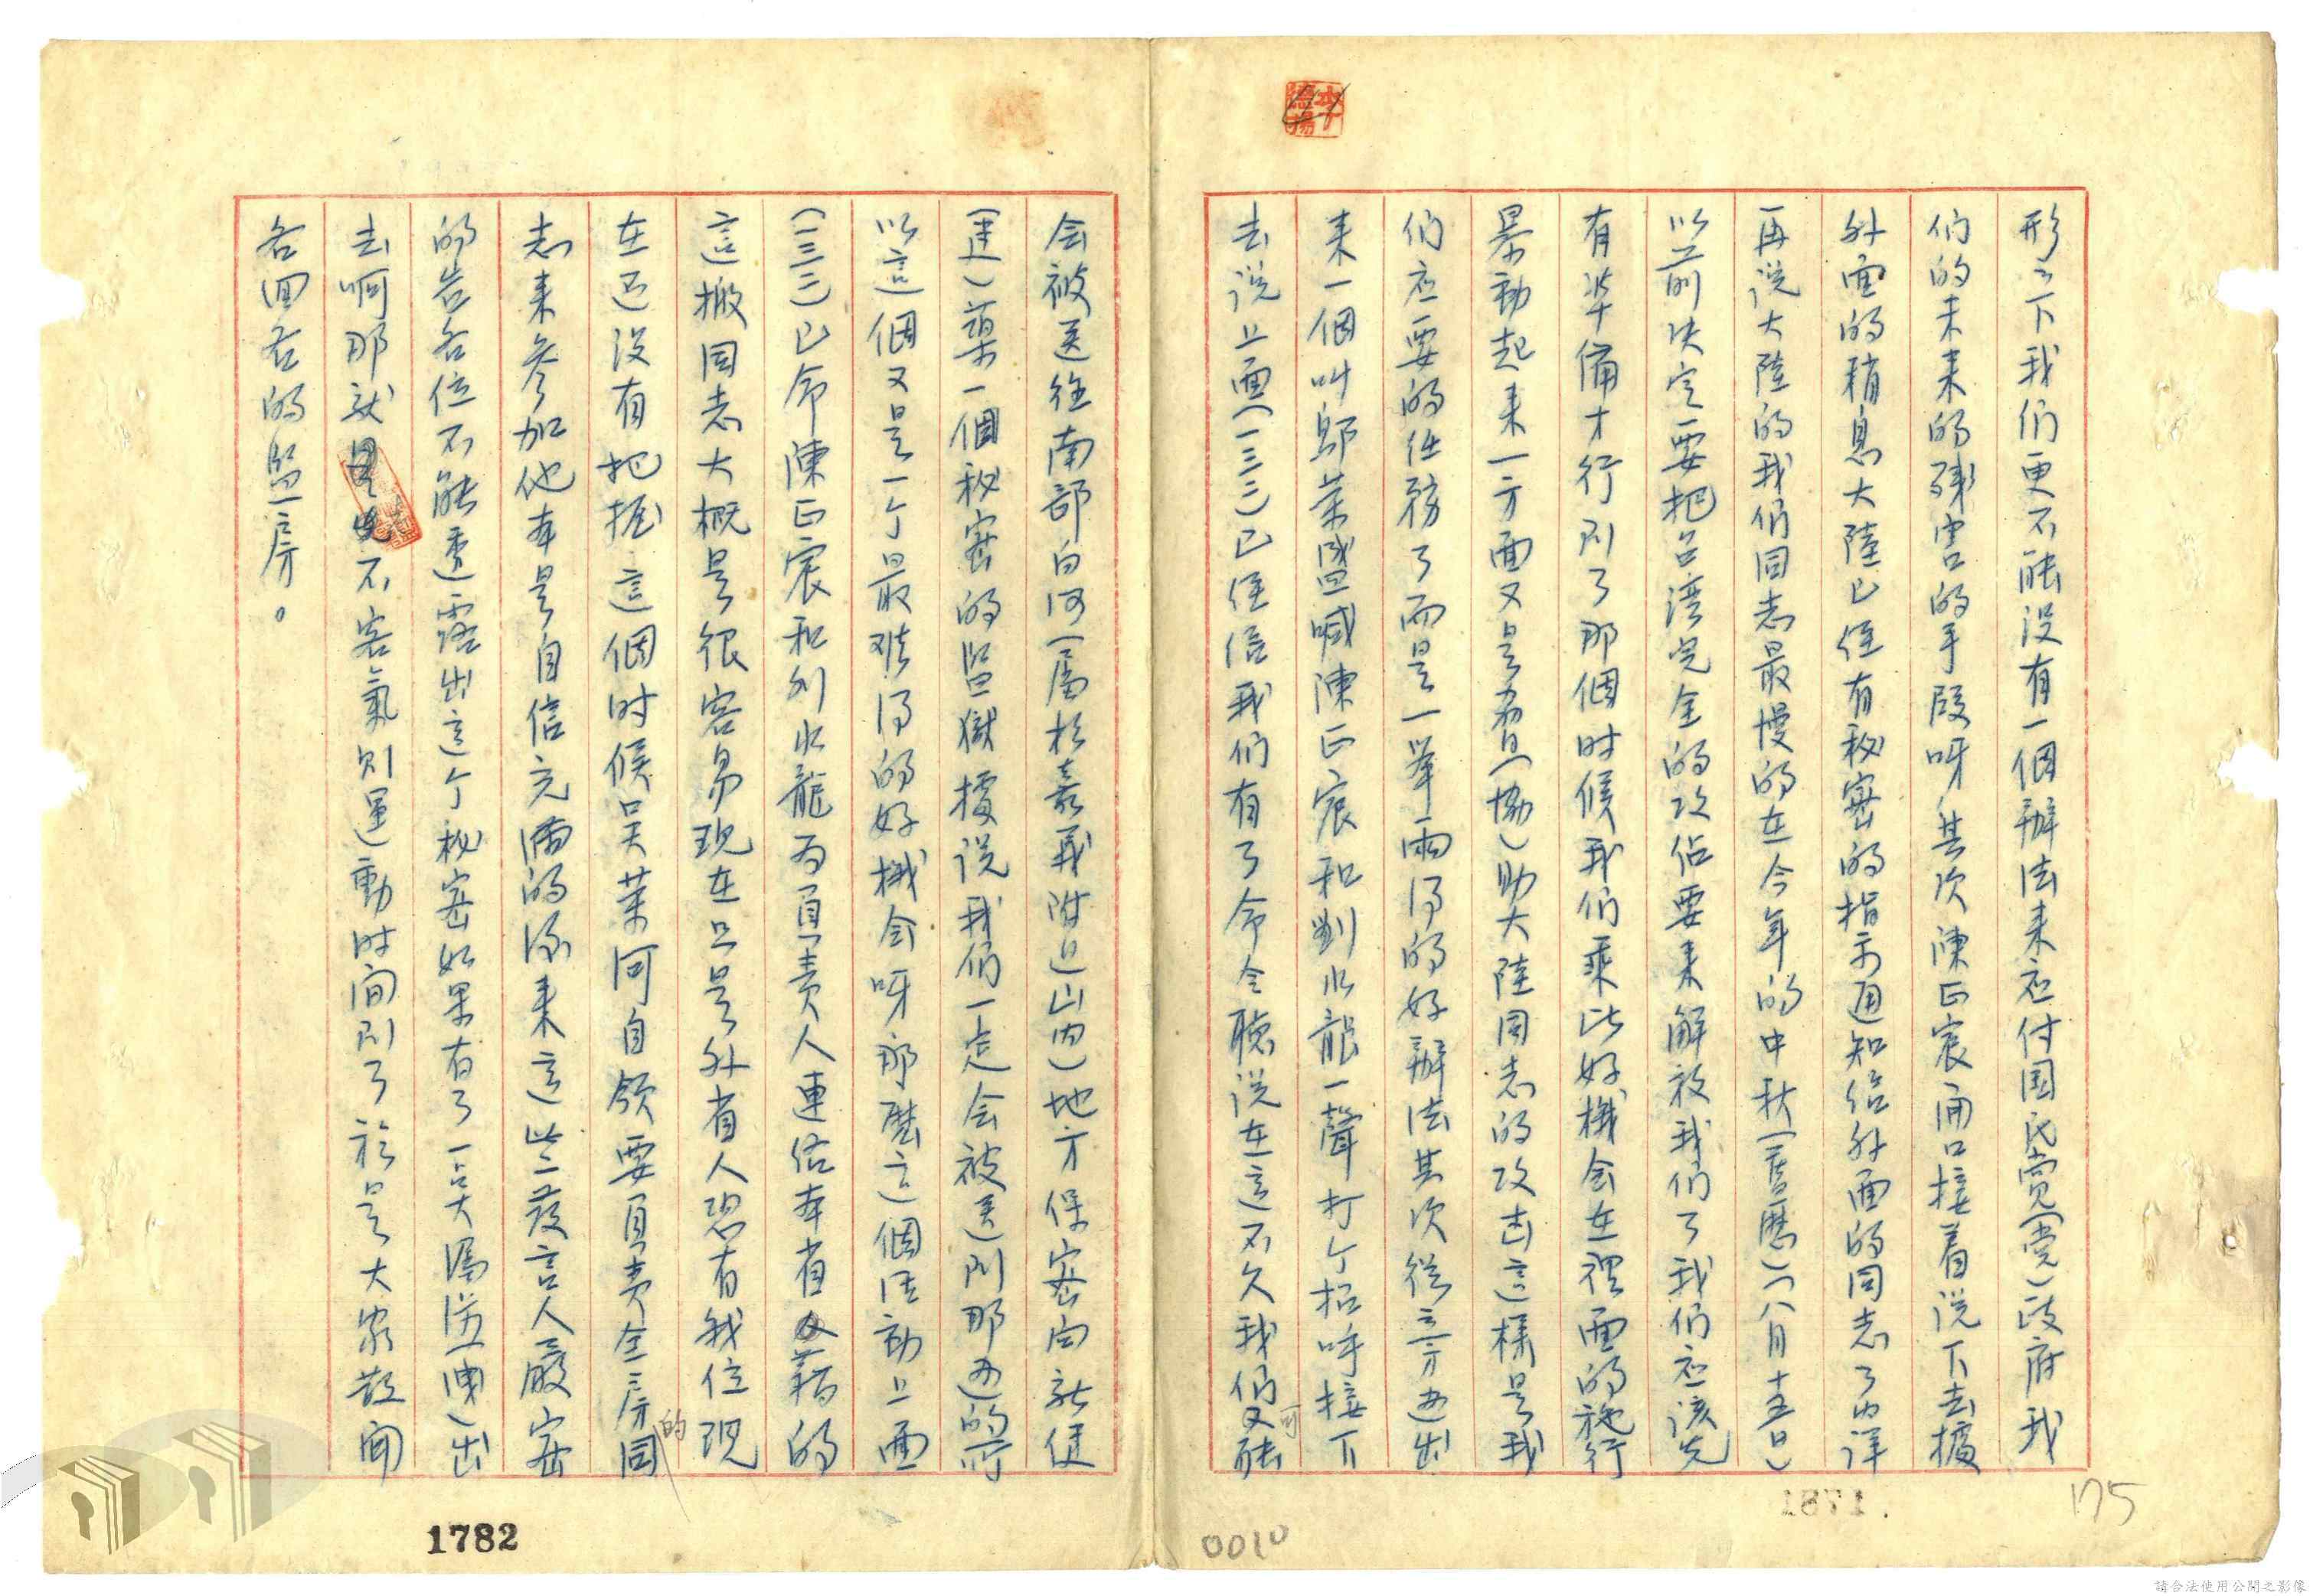 形之下我们更不能没有一個辦法来应付国民党(党)政府我
们的未来的残害的手段呀其次陳正宸涌口接着说下去據
外面的稍息大陸已经有秘密的指示通知给外面的同志了由详
再说大陸的我们同志最慢的在今年的中秋(舊曆)(八月十五日)
以前决定要把台湾完全的攻佔要来解放我们了我们应该先
有准備才行到了那個时候我们乘此好機会在裡面的施行
暴動起来一方面又是有(協)助大陸同志的攻击這樣是我
们应要的任務了而是一举両得的好辦法其次從三方面出
来一個叫鄔荣盛喊陳正宸和劉水龍一聲打个招呼接下
去说上面(一三三)已经信我们有了命令聴说在這不久我们又可能
会被送往南部白河(属於嘉義附近山内)地方保密局就使
(建)築一個秘密的監獄據说我们一定会被送到那边的所
以這個又是一个最难得的好機会呀那麼這個活动上面
(一三三)已命陳正宸和刘水龍为負責人連佔本省籍的
這搬同志大概是很容易現在只是外省人恐有我位現
在还没有把握這個时候吴荣河自領要負責全房的同
志来參加他本是自信充满的添来這些發言人嚴密
的告各位不能透露出這个秘密如果有了一点大漏洪(洩)出
去啊那就是 不客氣则運動时间到了於是大家散闻
各回各的監房。
175
1781
0010
1782
請合法使用公開之影像